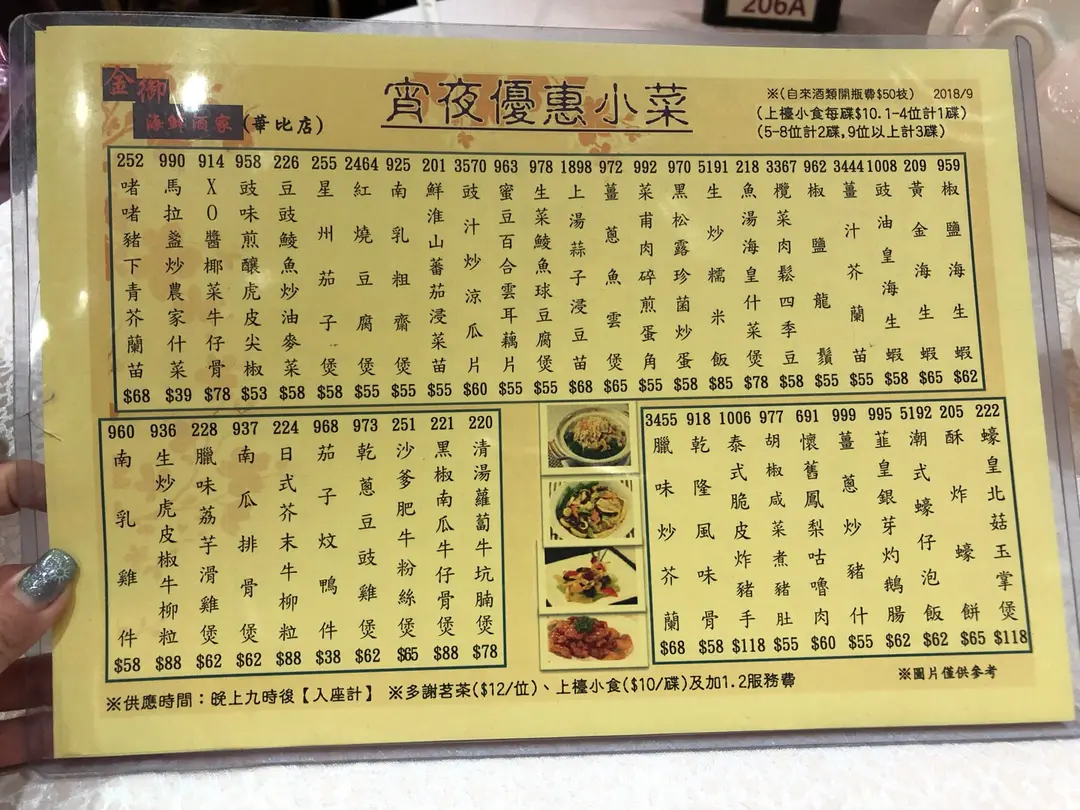 206A
金御
海鮮酒家(華比店)
宵夜優惠小菜
※(自來酒類開瓶費$50枝) 2018/9
(上檯小食每碟$10.1-4位計1碟)
(5-8位計2碟,9位以上計3碟)
252 啫啫豬下青芥蘭苗 $68
990 馬拉盞炒農家什菜 $39
914 XO醬椰菜牛仔骨 $78
958 豉味煎釀虎皮尖椒 $53
226 豆豉鯪魚炒油麥菜 $58
255 星州茄子煲 $58
2464 紅燒豆腐煲 $55
925 南乳粗齋煲 $55
201 鮮淮山蕃茄浸菜苗 $55
3570 豉汁炒涼瓜片 $60
963 蜜豆百合雲耳藕片 $55
978 生菜鯪魚球豆腐煲 $55
1898 上湯蒜子浸豆苗 $68
972 薑蔥魚雲煲 $65
992 菜甫肉碎煎蛋角 $55
970 黑松露珍菌炒蛋 $58
5191 生炒糯米飯 $85
218 魚湯海皇什菜煲 $78
3367 欖菜肉鬆四季豆 $58
962 椒鹽龍鬚 $55
3444 薑汁芥蘭苗 $55
1008 豉油皇海生蝦 $58
209 黃金海生蝦 $65
959 椒鹽海生蝦 $62
960 南乳雞件 $58
936 生炒虎皮椒牛柳粒 $88
228 臘味荔芋滑雞煲 $62
937 南瓜排骨煲 $62
224 日式芥末牛柳粒 $88
968 茄子炆鴨件 $38
973 乾蔥豆豉雞煲 $62
251 沙爹肥牛粉絲煲 $65
221 黑椒南瓜牛仔骨煲 $88
220 清湯蘿蔔牛坑腩煲 $78
3455 臘味炒芥蘭 $68
918 乾隆風味骨 $58
1006 泰式脆皮炸豬手 $118
977 胡椒咸菜煮豬肚 $55
691 懷舊鳳梨咕嚕肉 $60
999 薑蔥炒豬什 $55
995 韮皇銀芽灼鵝腸 $62
5192 潮式蠔仔泡飯 $62
205 酥炸蠔餅 $65
222 蠔皇北菇玉掌煲 $118
※圖片僅供參考
※供應時間：晚上九時後【入座計】 ※多謝茗茶($12/位)、上檯小食($10/碟)及加1.2服務費